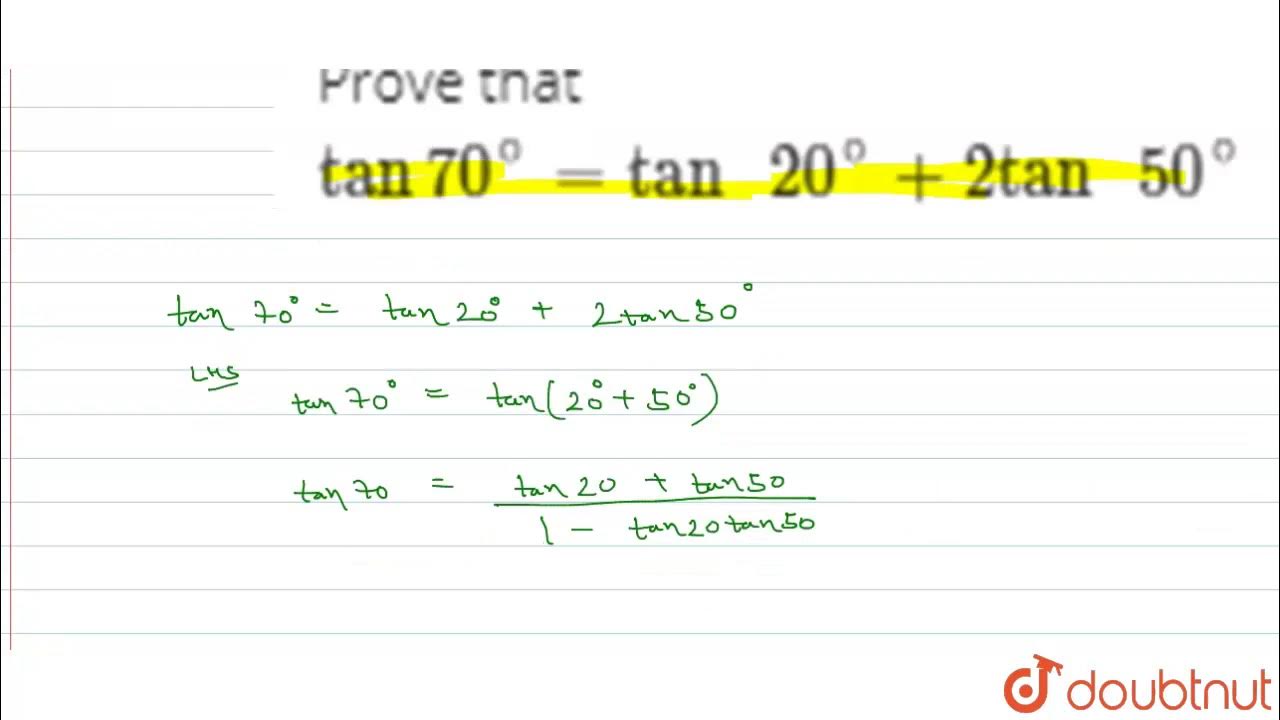 Prove that
tan 70° = tan 20° + 2tan 50°
tan 70° = tan 20° + 2 tan 50°
LHS
tan 70° = tan(20° + 50°)
tan 70 = tan 20 + tan 50
1 - tan 20 tan 50
doubtnut